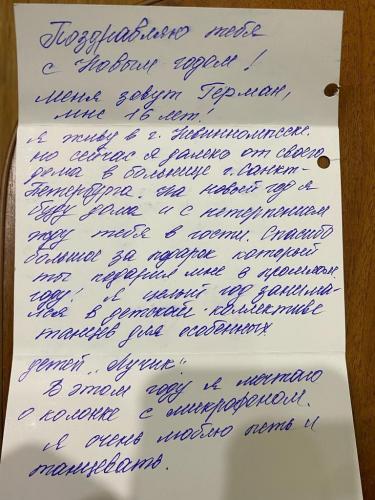 Поздравляю тебя
с Новым годом!
меня зовут Герман,
мне 16 лет!
Я живу в г. Невинномысске.
но сейчас я далеко от своего
дома в больнице г. Санкт-
Петербурга. На новый год я
буду дома и с нетерпением
жду тебя в гости. Спасибо
большое за подарок который
ты подарил мне в прошлом
году! Я целый год занима-
лся в детском коллективе
танцев для особенных
детей „Лучик".
В этом году я мечтаю
о колонке с микрофоном.
Я очень люблю петь и
танцевать.